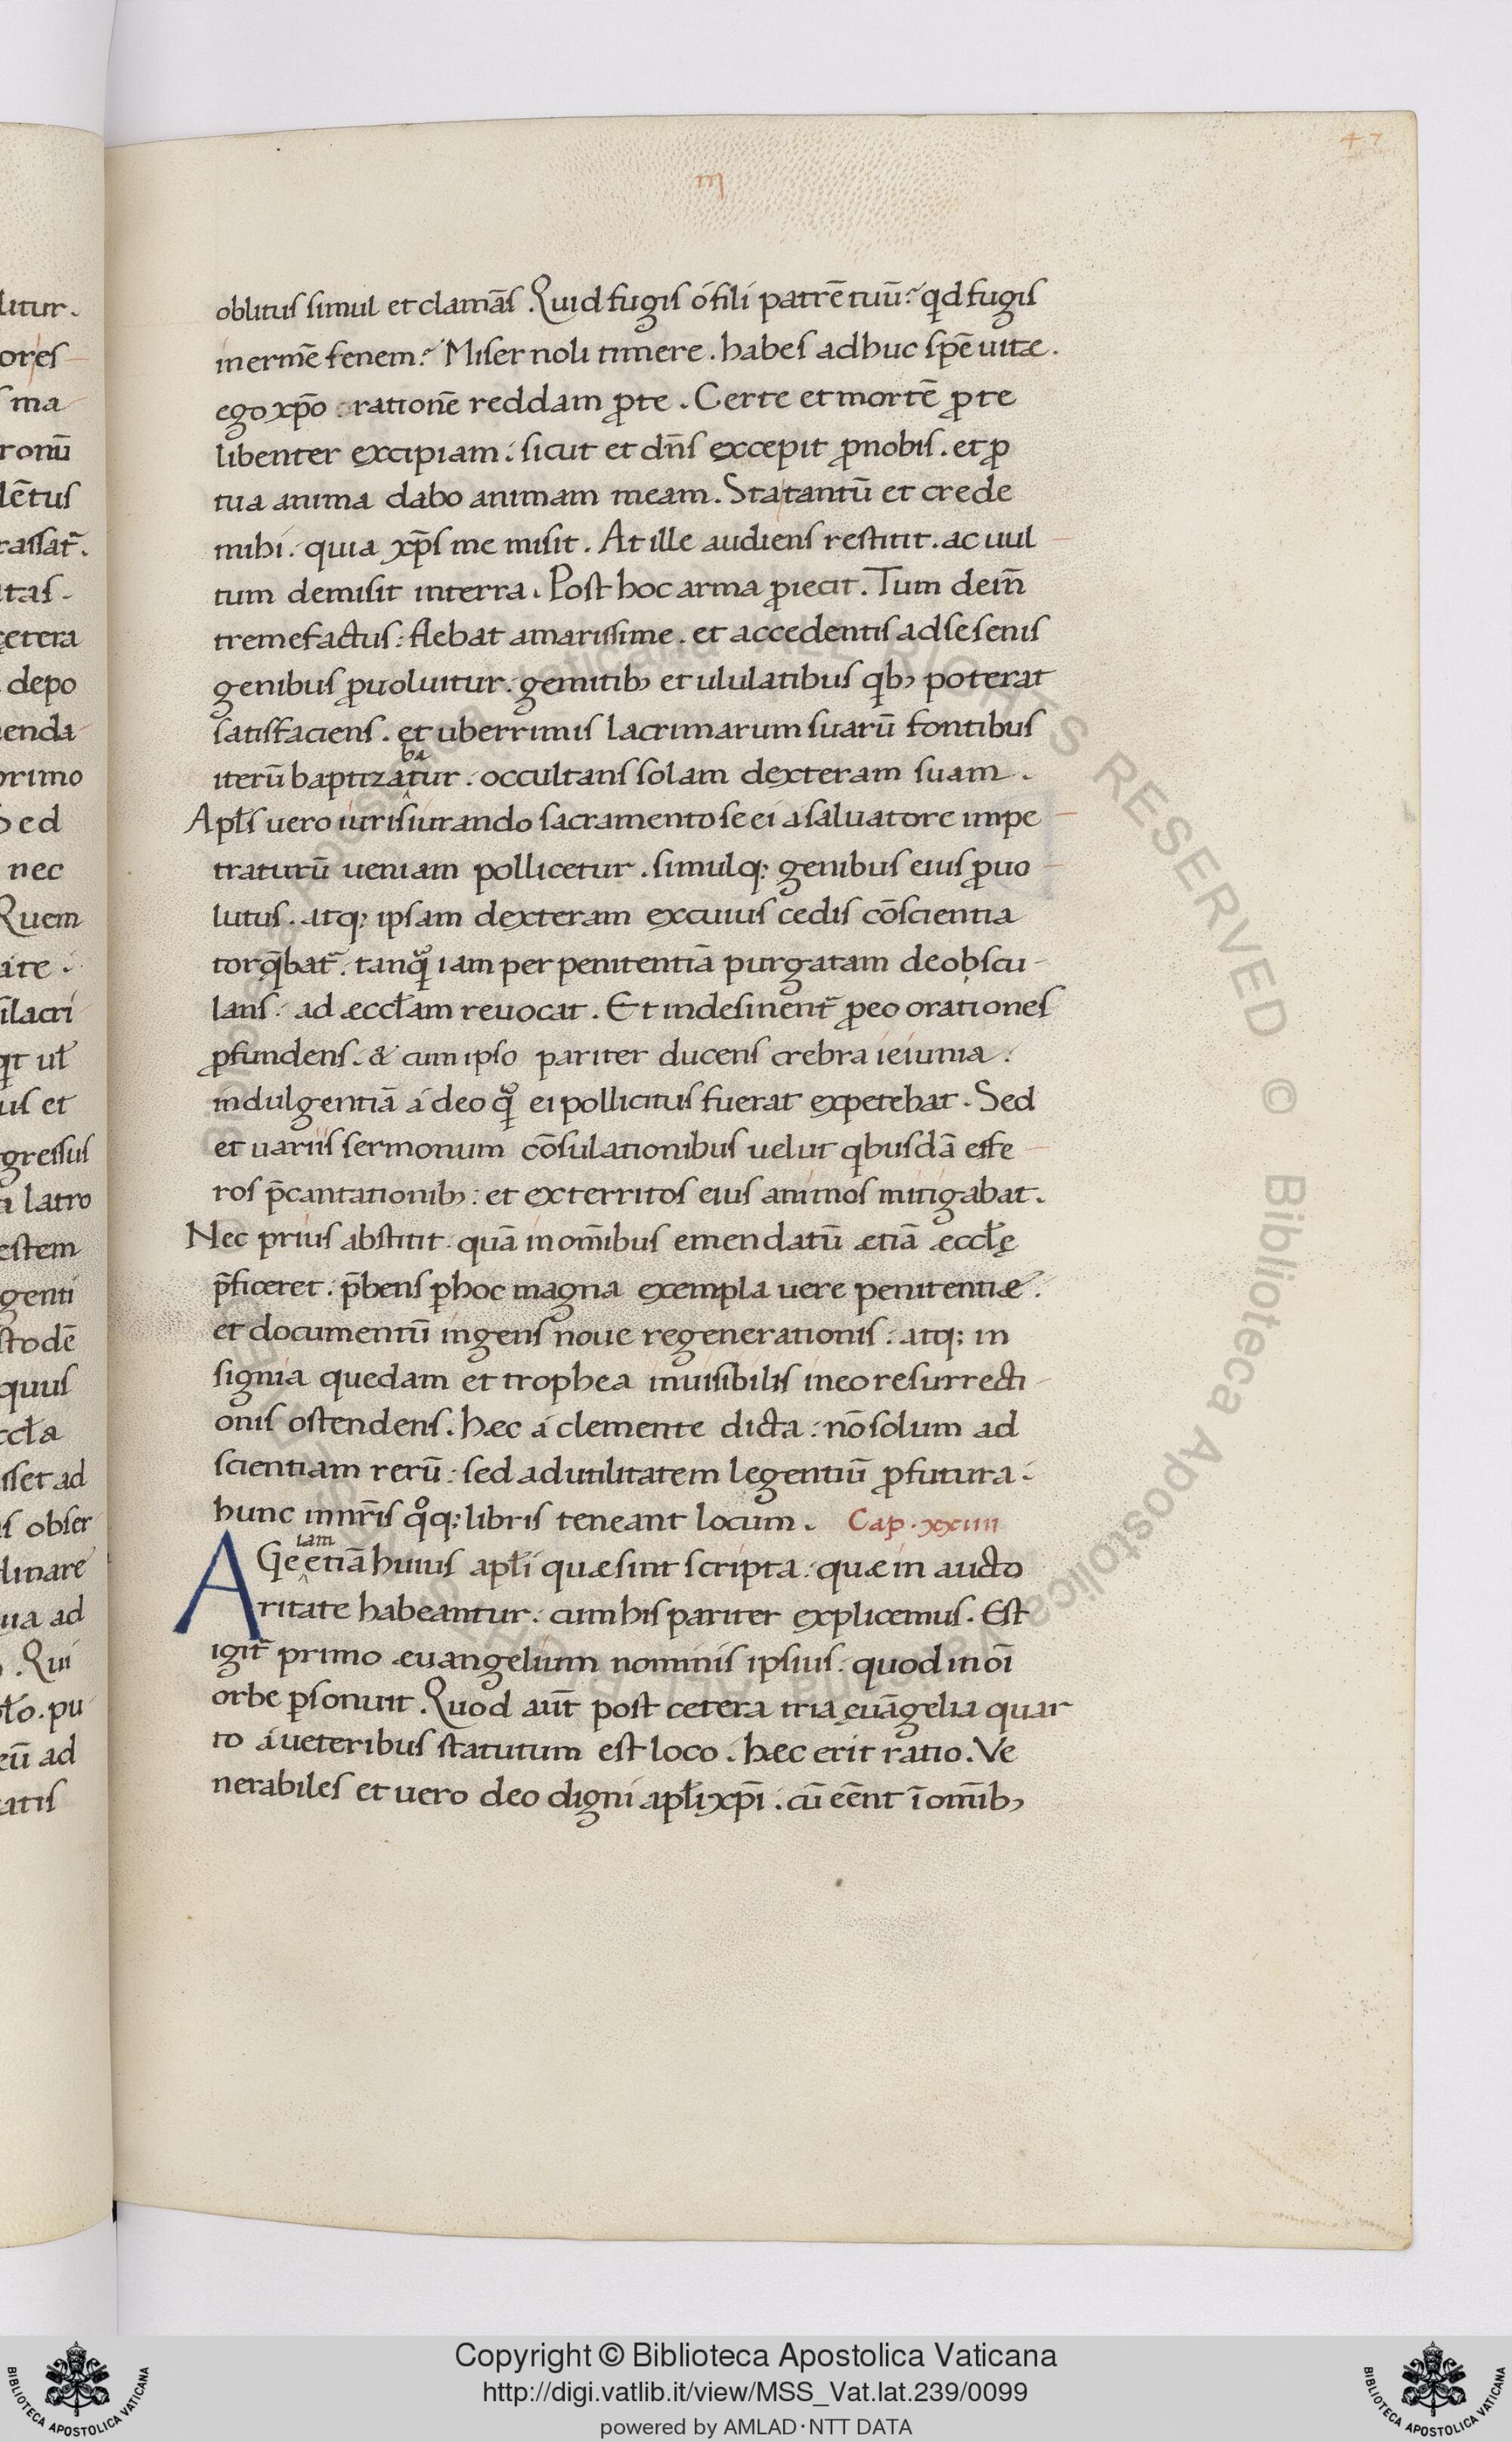 47
III
oblitus simul et clamās. Quid fugis ó fili patrē tuū? qd fugis
inermē senem? Miser noli timere. habes adhuc spē uitæ.
ego xp̄o rationē reddam ꝓ te. Certe et mortē ꝓ te
libenter excipiam: sicut et dn̄s excepit ꝓ nobis. et ꝓ
tua anima dabo animam meam. Sta tantū et crede
mihi. quia xp̄s me misit. At ille audiens restitit. ac uul
tum demisit in terra. Post hoc arma ꝓiecit. Tum dein̄
tremefactus: flebat amarissime. et accedentis ad se senis
genibus ꝓuoluitur. gemitibꝫ et ululatibus qbꝫ poterat
satisfaciens. et uberrimis lacrimarum suarū fontibus
iterū baptiza^ba^tur. occultans solam dexteram suam.
Apl̄s uero iurisiurando sacramento se ei a saluatore impe
traturū ueniam pollicetur. simulq; genibus eius ꝓuo
lutus. atq; ipsam dexteram ex cuius cedis cōscientia
torq̄bat᷑. tanq̄ iam per penitentiā purgatam deobscu
lans. ad æccl̄am reuocat. Et indesinent᷑ ꝓ eo orationes
ꝓfundens. & cum ipso pariter ducens crebra ieiunia.
indulgentiā á deo quā ei pollicitus fuerat expetebat. Sed
et uariis sermonum cōsulationibus uelut qbusdā effe
ros p̄cantationibꝫ: et exterritos eius animos mitigabat.
Nec prius abstitit quā in om̄ibus emendatū ætiā æccl̄ę
p̄ficeret. p̄bens ꝑ hoc magna exempla uere penitentiæ.
et documentū ingens noue regenerationis. atq; in
signia quedam et trophea inuisibilis in eo resurrecti
onis ostendens. hæc á clemente dicta: nō solum ad
scientiam rerū: sed ad utilitatem legentiū ꝓfutura.
hunc in nr̄is qͦq; libris teneant locum. Cap. xxiiii
AGe ^iam^ etiā huius apl̄i quæ sint scripta: quæ in aucto
ritate habeantur. cum his pariter explicemus. Est
igit᷑ primo æuangelium nominis ipsius. quod in oī
orbe ꝑsonuit. Quod aut̄ post cetera tria ęuāgelia quar
to á ueteribus statutum est loco. hæc erit ratio. Ve
nerabiles et uero deo digni apl̄i xp̄i. cū eēnt ī om̄ibꝫ
litur.
ores
ma
ronū
lētus
rassat᷑.
itas.
cętera
depo
uenda
primo
Sed
nec
Quem
are.
silacri
qt ul̄
us et
gressus
latro
estem
genti
stodē
quus
ccl̄a
isset ad
is obser
dinare
ua ad
. Qui
l̄o. pu
eū ad
atis
© Biblioteca Apostolica Vaticana ALL RIGHTS RESERVED
Copyright © Biblioteca Apostolica Vaticana
http://digi.vatlib.it/view/MSS_Vat.lat.239/0099
powered by AMLAD·NTT DATA
BIBLIOTECA APOSTOLICA VATICANA
BIBLIOTECA APOSTOLICA VATICANA